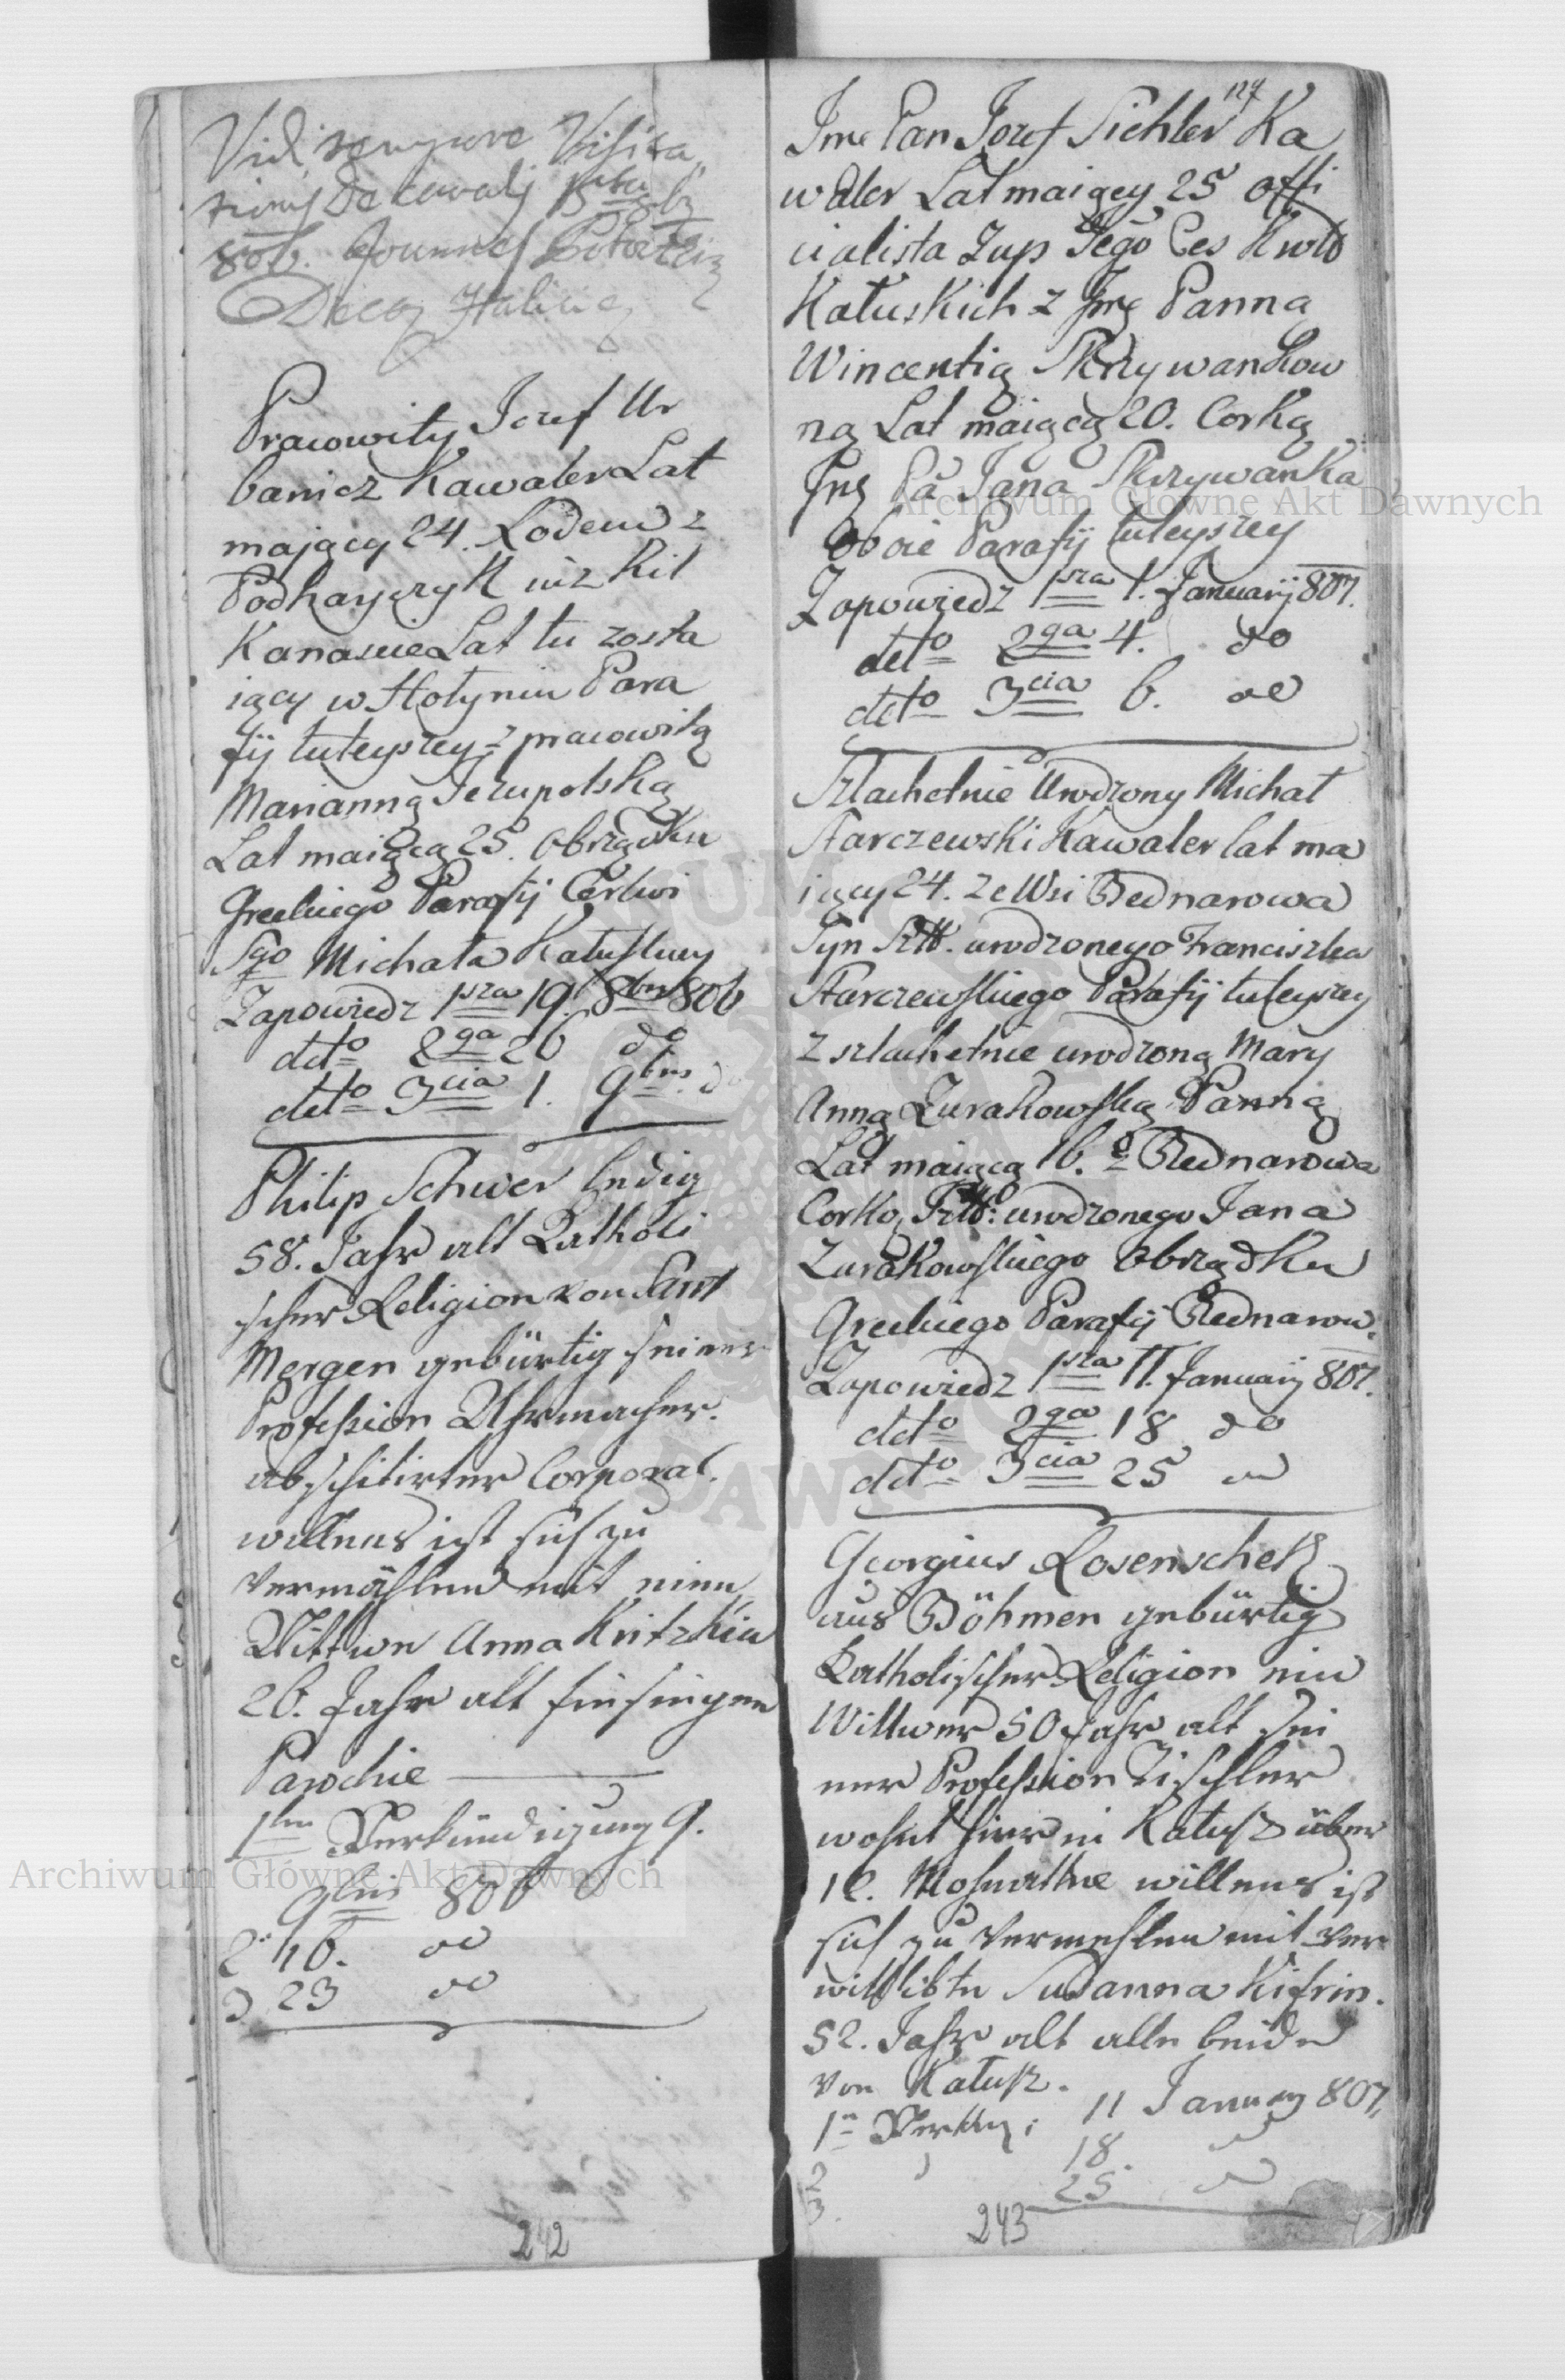 Vidi tempore Visita
tionis Decanalis 8bris
806. Joannes
Decan Halic
Pracowity Jozef Ur
banicz Kawaler Lat
maiący 24. Rodem z
Podhayczyk iuż kil
Kanascie Lat tu zosta
iący w Hołyniu Para
fij tuteyszey z pracowitą
Marianną Jezupolską
Lat maiącą 25. Obrządku
Greckiego Parafij Cerkwi
Sgo Michała Kałuskiey
Zapowiedz 1sza 19. 8bris 806
detto 2ga 26 do
detto 3cia 1. 9bris do
Philip Schwer ledig
58. Jahr alt Katholi
scher Religion von Sant
Mergen gebürtig seiner
Profession Uhrmacher.
abschitirter Corporal.
willens ist sich zu
vermählen mit einer
Wittwe Anna Kritzkin
26. Jahr alt hiesiegen
Parochie
1ten Verkündigung 9.
9bris 806
2. 16. do
3 23 do
242
127
Jmć Pan Jozef Sichler Ka
waler Lat maiący 25 offi
cialista Zup Jego Ces Krol
Kałuskich z Jmć Panną
Wincentią Skrzywankow
ną Lat maiącą 20. Corką
Jmć Pa Jana Skrzywanka
oboie Parafij tuteyszey
Zapowiedz 1sza 1. Januarij 807.
detto 2ga 4. do
detto 3cia 6. do
Szlachetnie Urodzony Michał
Starczewski Kawaler lat ma
iący 24. ze Wsi Bednarowa
Syn Szltt. urodzonego Franciszka
Starczewskiego Parafij tuteyszey
z szlachetnie urodzoną Mary
Anną Zurakowską Panną
Lat maiącą 16. z Bednarowa
Corką Szltt: urodzonego Jana
Zurakowskiego Obrządku
Greckiego Parafij Bednarow.
Zapowiedz 1sza 11. Januarij 807.
detto 2ga 18 do
detto 3cia 25 do
Georgius Rosenschek
aus Böhmen gebürtig
Katholischer Religion ein
Wittwer 50 Jahr alt sei
ner Profession Tischler
wohnt hier in Kałusz über
willens ist
sich zu vermehlen mit ver
wittibte Susanna Kifrin.
52. Jahr alt alle beide
von Kałusz.
1n Verkg: 11 January 807.
2 18. do
3. 25. do
243
Archiwum Główne Akt Dawnych
Archiwum Główne Akt Dawnych